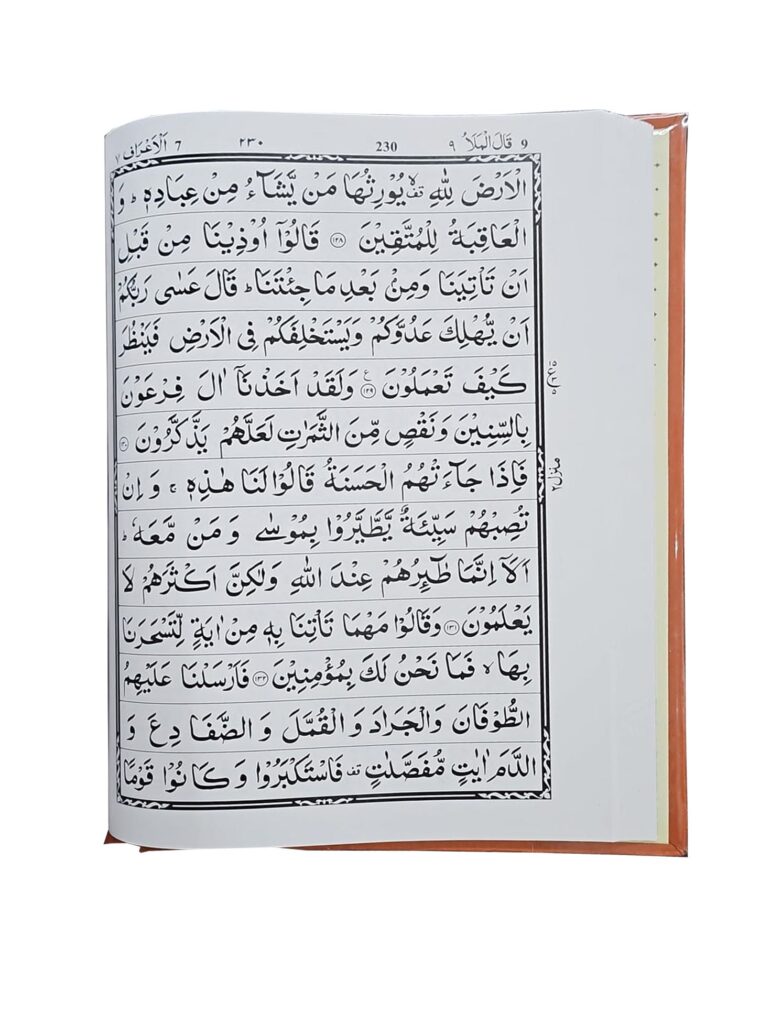 9 قَالَ الْمَلَأُ ٩ 230 ٢٣٠ 7 اَلْاَعْرَاف ٧
الْاَرْضَ لِلّٰهِ ۙ قف يُوْرِثُهَا مَنْ يَّشَآءُ مِنْ عِبَادِهٖ ؕ وَ
الْعَاقِبَةُ لِلْمُتَّقِيْنَ ﴿۱۲۸﴾ قَالُوْۤا اُوْذِيْنَا مِنْ قَبْلِ
اَنْ تَاْتِيَنَا وَمِنْ بَعْدِ مَا جِئْتَنَا ؕ قَالَ عَسٰى رَبُّكُمْ
اَنْ يُّهْلِكَ عَدُوَّكُمْ وَيَسْتَخْلِفَكُمْ فِى الْاَرْضِ فَيَنْظُرَ
كَيْفَ تَعْمَلُوْنَ ﴿۱۲۹﴾ ع وَلَقَدْ اَخَذْنَاۤ اٰلَ فِرْعَوْنَ
بِالسِّنِيْنَ وَنَقْصٍ مِّنَ الثَّمَرٰتِ لَعَلَّهُمْ يَذَّكَّرُوْنَ ﴿۱۳۰﴾
فَاِذَا جَآءَتْهُمُ الْحَسَنَةُ قَالُوْا لَنَا هٰذِهٖ ۚ وَاِنْ
تُصِبْهُمْ سَيِّئَةٌ يَّطَّيَّرُوْا بِمُوْسٰى وَمَنْ مَّعَهٗ ؕ
اَلَاۤ اِنَّمَا طٰٓئِرُهُمْ عِنْدَ اللّٰهِ وَلٰكِنَّ اَكْثَرَهُمْ لَا
يَعْلَمُوْنَ ﴿۱۳۱﴾ وَقَالُوْا مَهْمَا تَاْتِنَا بِهٖ مِنْ اٰيَةٍ لِّتَسْحَرَنَا
بِهَا ۙ فَمَا نَحْنُ لَكَ بِمُؤْمِنِيْنَ ﴿۱۳۲﴾ فَاَرْسَلْنَا عَلَيْهِمُ
الطُّوْفَانَ وَالْجَرَادَ وَالْقُمَّلَ وَالضَّفَادِعَ وَ
الدَّمَ اٰيٰتٍ مُّفَصَّلٰتٍ قف فَاسْتَكْبَرُوْا وَكَانُوْا قَوْمًا
منزل ٢